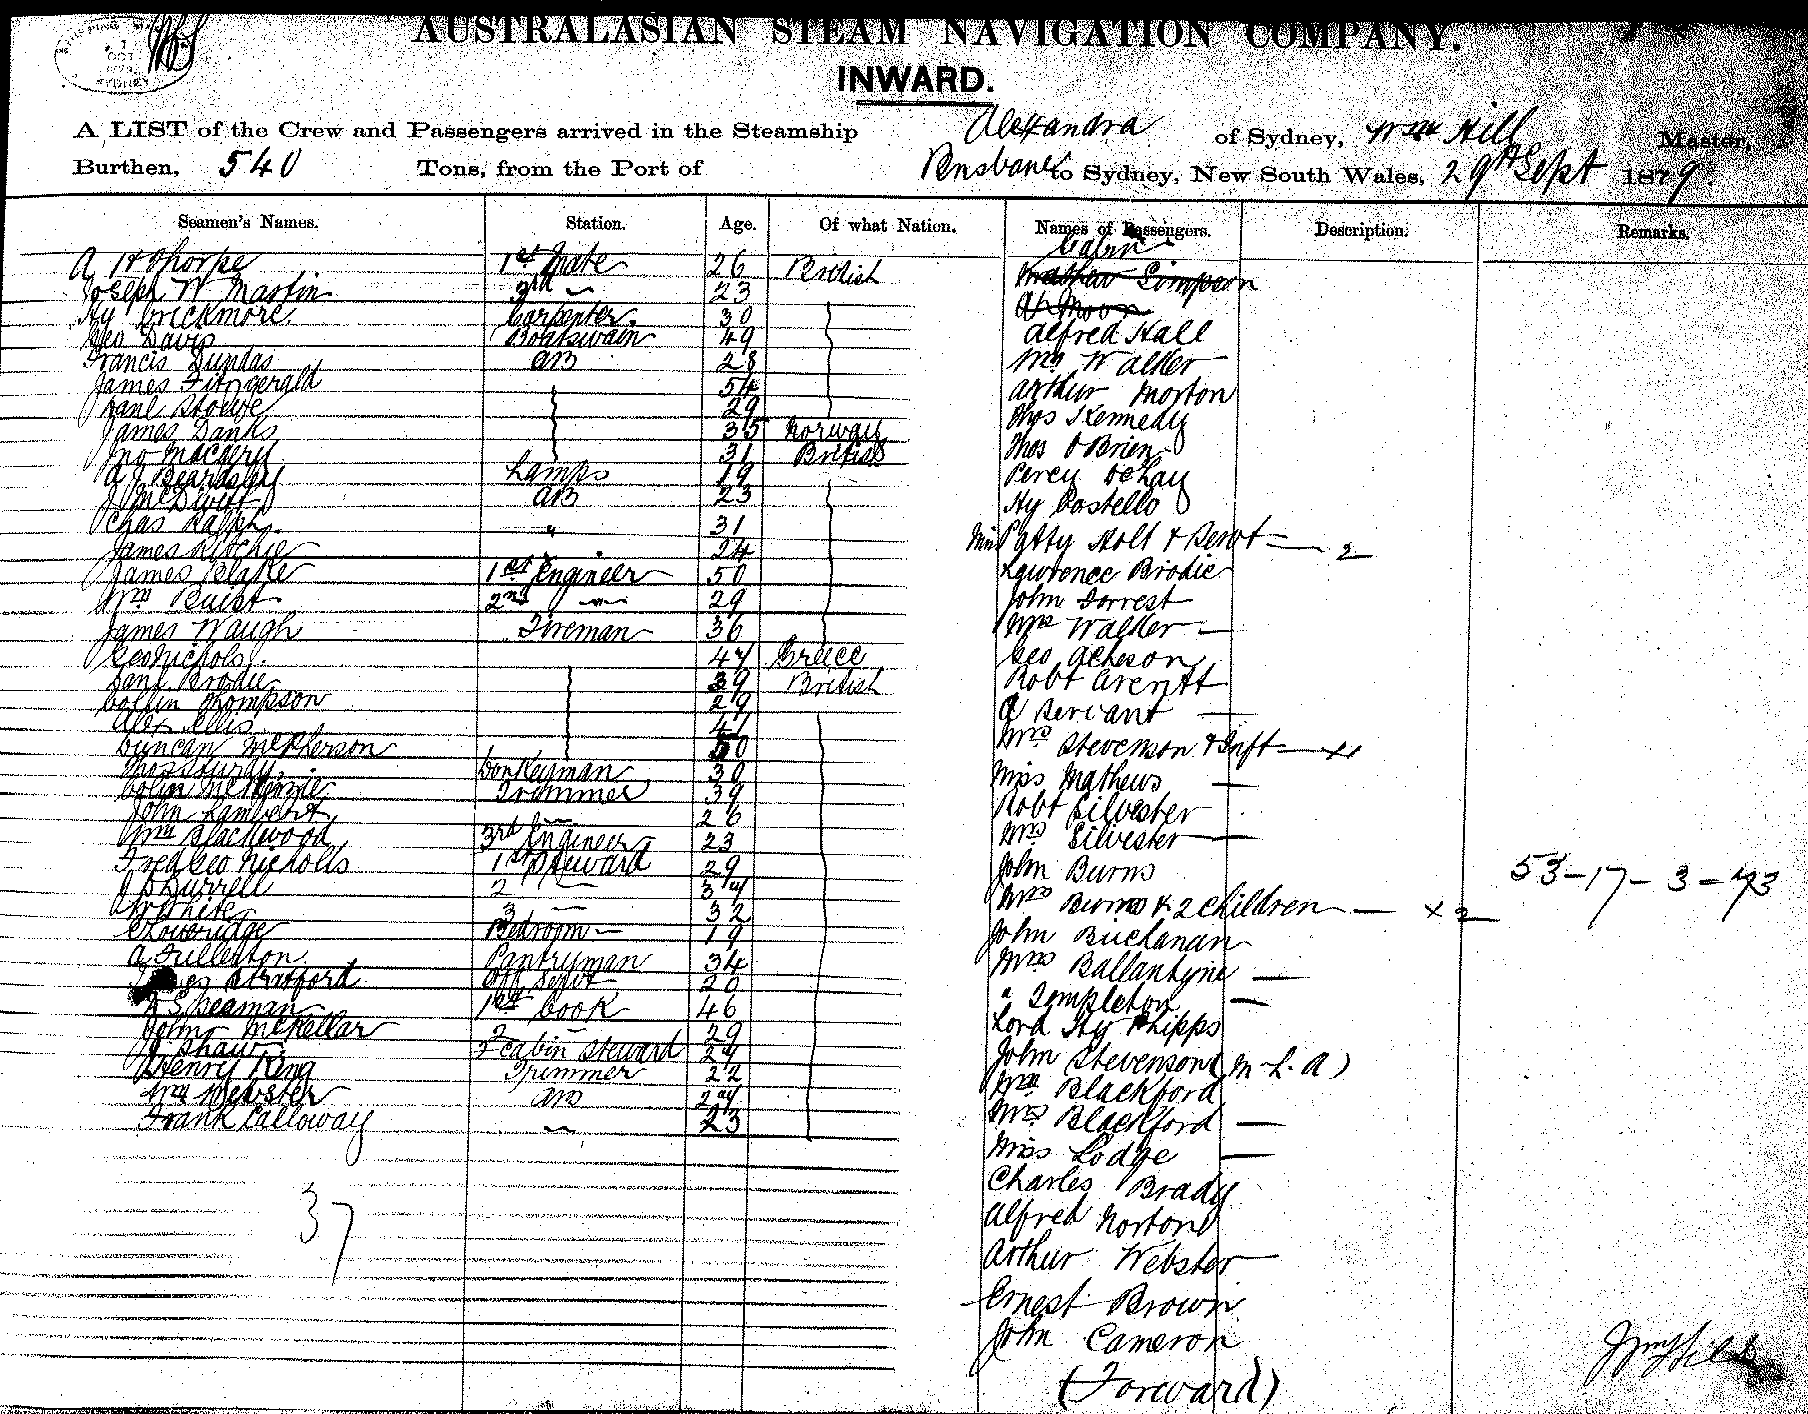 AUSTRALASIAN STEAM NAVIGATION COMPANY.
INWARD.
A LIST of the Crew and Passengers arrived in the Steamship Alexandra of Sydney, Wm Hill Master,
Burthen, 540 Tons, from the Port of Brisbane to Sydney, New South Wales, 29th Sept 1879.
Seamen's Names. Station. Age. Of what Nation. Names of Passengers. Description. Remarks.
Cabin
A H Thorpe 1st Mate 26 British
Joseph W Martin 3rd 23
Hy Crickmore Carpenter 30
Geo Davis Boatswain 49
Francis Dundas AB 28
James Fitzgerald 54
29
James Danks 35 Norway
Jno 31 British
A J Beardsley Lamps 19
J McDivitt AB 23
Chas Ralph " 31
James Ritchie 24
James Blake 1st Engineer 50
Wm Buist 2nd 29
James Waugh Fireman 36
Geo Nichols 47 Greece
Danl Brodie 39 British
Collin Thompson 29
Alex Ellis 41
Duncan McPherson 50
Donkeyman 30
Colin McKenzie Trimmer 39
John Lambert 26
Wm Blackwood 3rd Engineer 23
Fred Geo Nicholls 1st Steward 29
J D Burrell 2 34
W White 3 32
Loveridge Bedroom 19
A Fullerton Pantryman 34
Stratford 20
Seaman 1st Cook 46
John McKellar 2 29
J Shaw 2 Cabin Steward 27
Henry King Trimmer 22
Wm Webster AB 24
Frank Calloway 23
37
Simpson
A Moon
Alfred Hall
Mr Walker
Arthur Morton
Thos Kennedy
Thos O'Brien
Percy
Hy Costello
Miss Patty Holt & Servt 2
Lawrence Brodie
John Forrest
Mrs Walker
Geo Acheson
Robt
A Servant
Mrs Stevenson & Inft
Miss Mathews
Robt Silvester
Mrs Silvester
John Burns
Mrs Burns & 2 children × 2
John Buchanan
Mrs Ballantyne
" Templeton
Lord Hy Phipps
John Stevenson (M.L.A)
Wm Blackford
Mrs Blackford
Miss Lodge
Charles Brady
Alfred Norton
Arthur Webster
Ernest Brown
John Cameron
(Forward)
53-17-3-73
Wm Hill